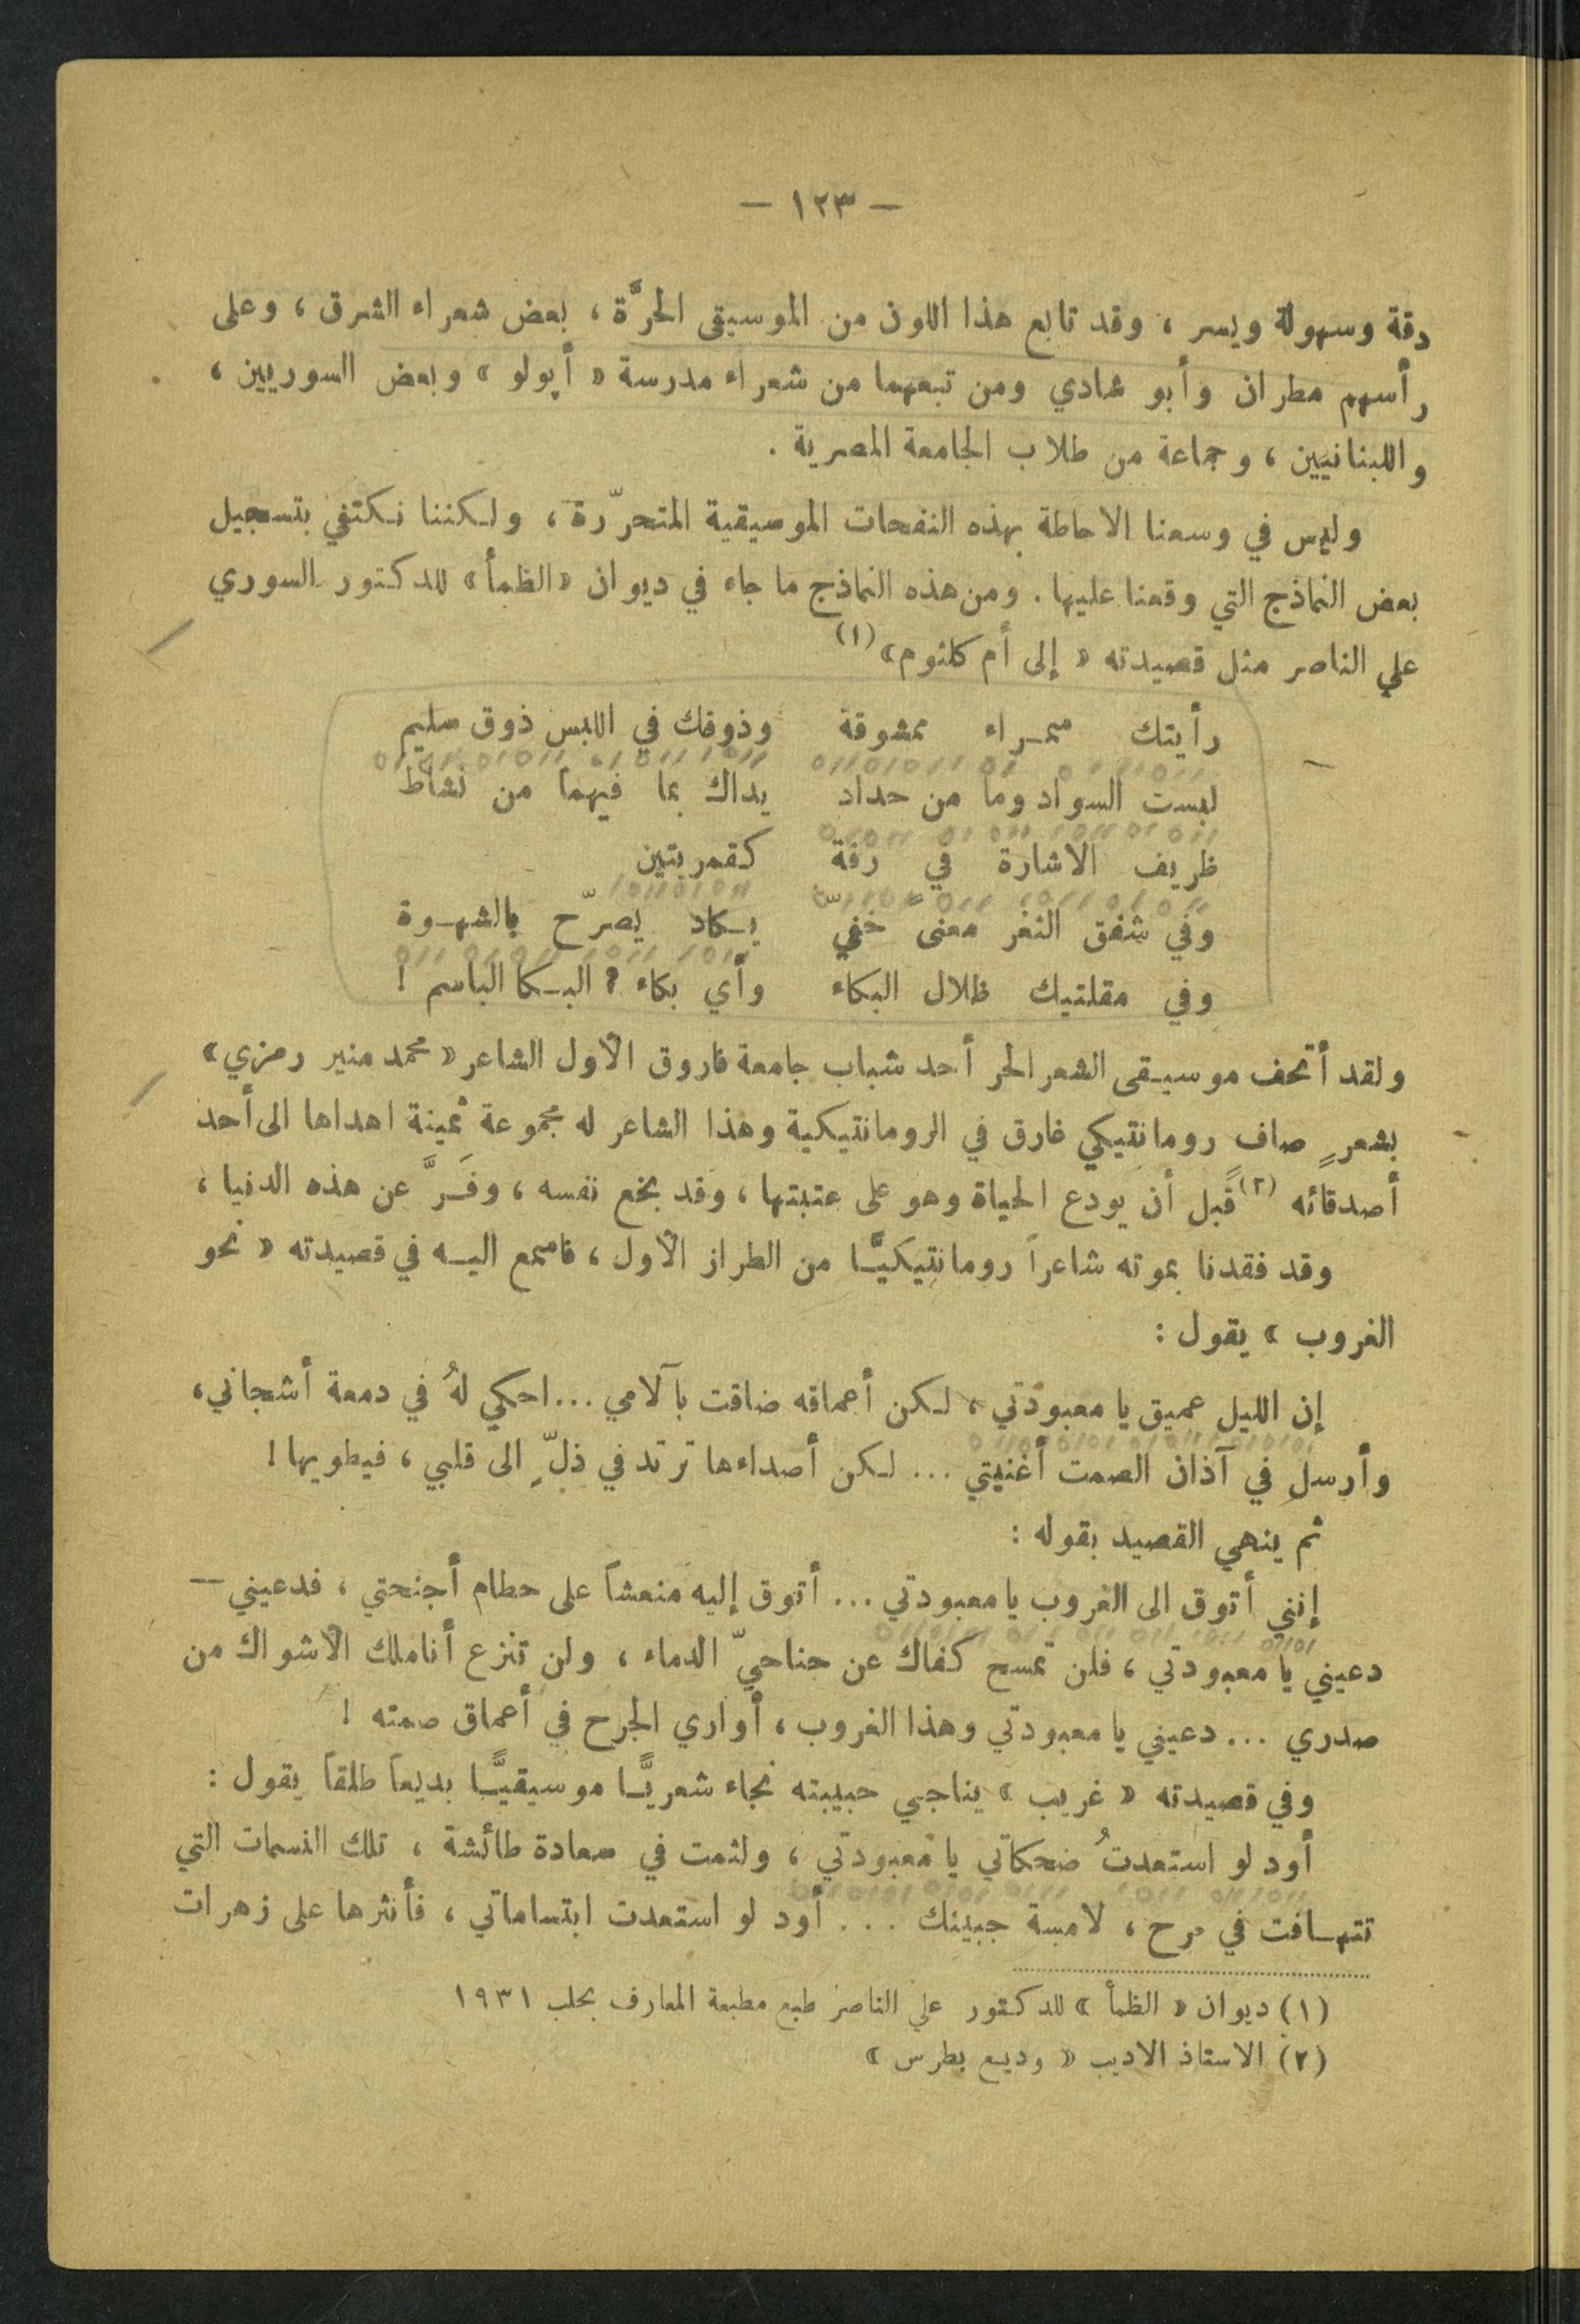 — ١٢٣ —
دقة وسهولة ويسر ، وقد تابع هذا اللون من الموسيقى الحرَّة ، بعض شعراء الشرق ، وعلى
رأسهم مطران وأبو شادي ومن تبعهما من شعراء مدرسة « أپولو » وبعض السوريين ،
واللبنانيين ، وجماعة من طلاب الجامعة المصرية .
وليس في وسعنا الاحاطة بهذه النفحات الموسيقية المتحرّرة ، ولكننا نكتفي بتسجيل
بعض النماذج التي وقعنا عليها . ومن هذه النماذج ما جاء في ديوان «الظمأ» للدكتور السوري
علي الناصر مثل قصيدته « إلى أم كلثوم» (١)
رأيتك سمراء ممشوقة وذوقك في اللبس ذوق سليم
لبست السواد وما من حداد يداك بما فيهما من نشاط
ظريف الاشارة في رقة كقمريتين
وفي شفق الثغر معنى خفيّ يكاد يصرّح بالشهوة
وفي مقلتيك ظلال البكاء وأي بكاء ? البكا الباسم !
ولقد أتحف موسيقى الشعر الحر أحد شباب جامعة فاروق الأول الشاعر «محمد منير رمزي»
بشعرٍ صاف رومانتيكي غارق في الرومانتيكية وهذا الشاعر له مجموعة ثمينة اهداها الى أحد
أصدقائه (٢) قبل أن يودع الحياة وهو على عتبتها ، وقد بخع نفسه ، وفَرَّ عن هذه الدنيا ،
وقد فقدنا بموته شاعراً رومانتيكيًّا من الطراز الأول ، فاسمع اليه في قصيدته « نحو
الغروب » يقول :
إن الليل عميق يا معبودتي ، لكن أعماقه ضاقت بآلامي ... احكي لهُ في دمعة أشجاني ،
وأرسل في آذان الصمت أغنيتي ... لكن أصداءها ترتد في ذلّ الى قلبي ، فيطويها !
ثم ينهي القصيد بقوله :
إنني أتوق الى الغروب يا معبودتي ... أتوق إليه منعشاً على حطام أجنحتي ، فدعيني —
دعيني يا معبودتي ، فلن تمسح كفاك عن جناحيّ الدماء ، ولن تنزع أناملك الأشواك من
صدري ... دعيني يا معبودتي وهذا الغروب ، أواري الجرح في أعماق صمته !
وفي قصيدته « غريب » يناجي حبيبته نجاء شعريًّا موسيقيًّا بديعاً طلقاً يقول :
أود لو استعدتُ ضحكاتي يا معبودتي ، ولثمت في سعادة طائشة ، تلك النسمات التي
تتهافت في مرح ، لامسة جبينك ... أود لو استعدت ابتساماتي ، فأنثرها على زهرات
(١) ديوان « الظمأ » للدكتور علي الناصر طبع مطبعة المعارف بحلب ١٩٣١
(٢) الاستاذ الاديب « وديع بطرس »